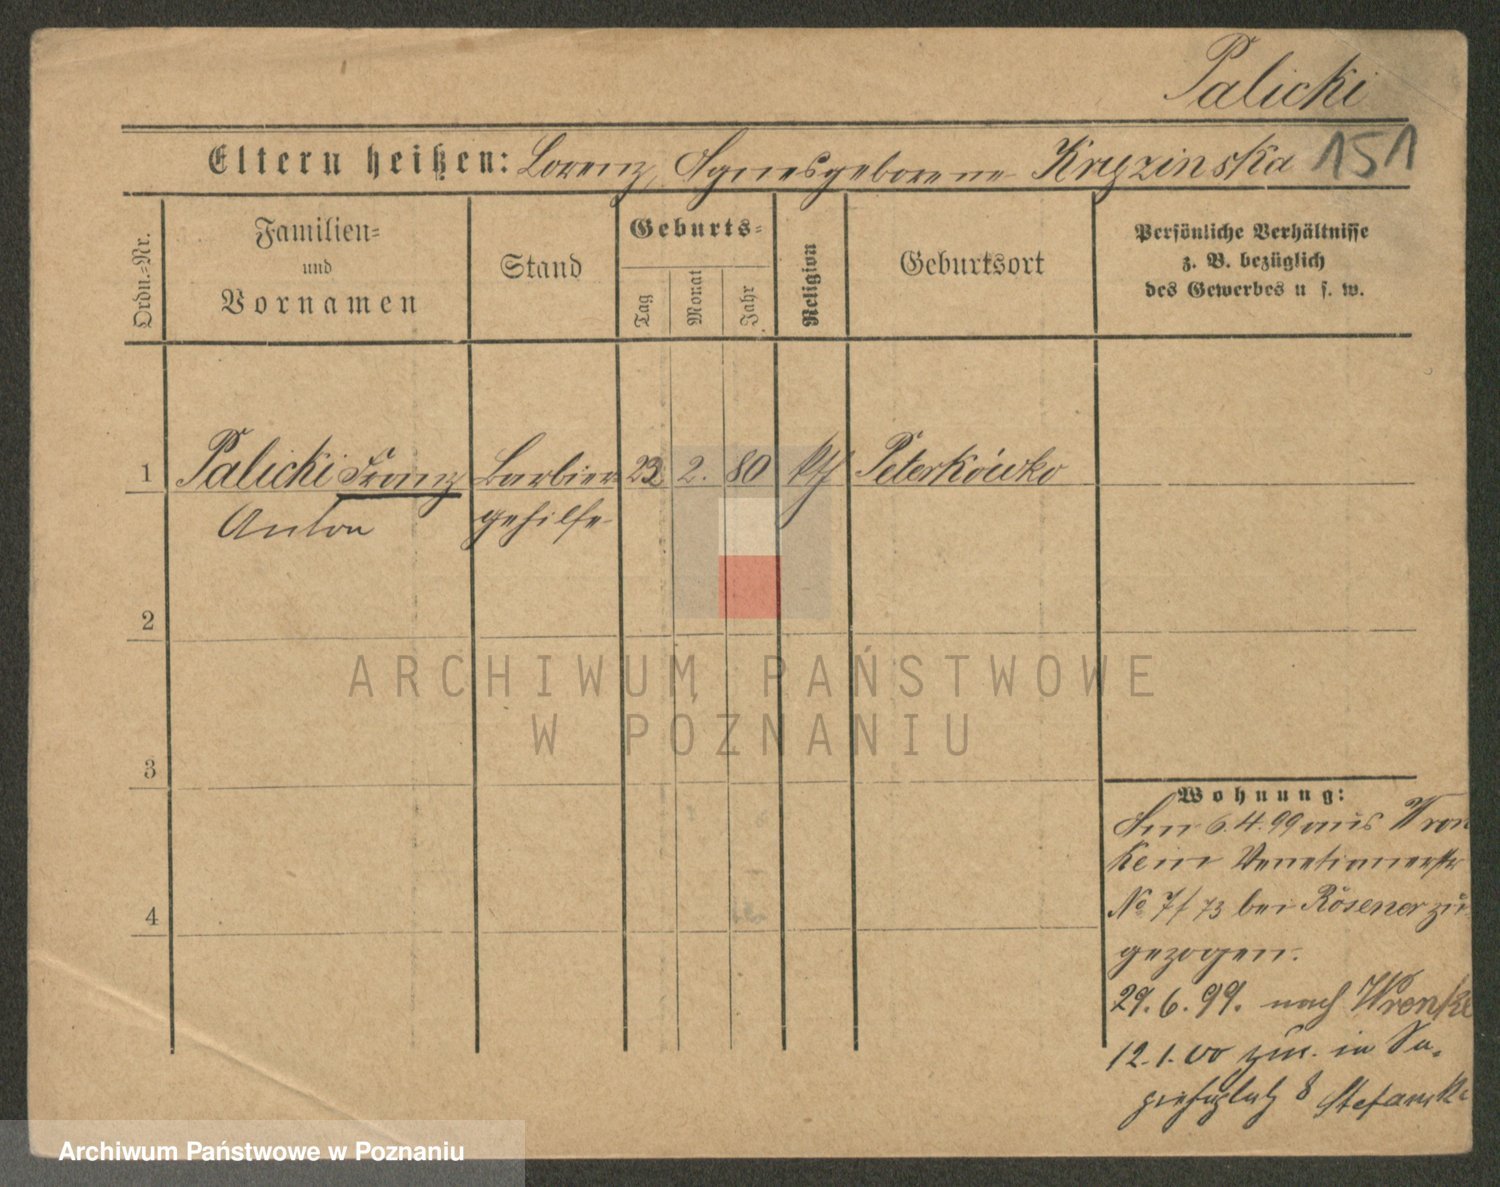 Palicki
Eltern heißen: Lorenz, Agnes geborene Kryzinska 151
Ordn.-Nr.
Familien-
und
Vornamen
Stand
Geburts-
Tag
Monat
Jahr
Religion
Geburtsort
Persönliche Verhältnisse
z. B. bezüglich
des Gewerbes u s. w.
1 Palicki Franz Barbier- 23 2. 80 kth Peterkówko
Anton gehilfe
2
3
4
Wohnung:
Am 6.4.99 aus Wron
ke in Venetianerstr
No 7/73 bei Rösener zu
gezogen.
29.6.99. nach Wronke
12.1.00 zur. in Sa-
piehaplatz 8 Stefanski
ARCHIWUM PAŃSTWOWE
W POZNANIU
Archiwum Państwowe w Poznaniu